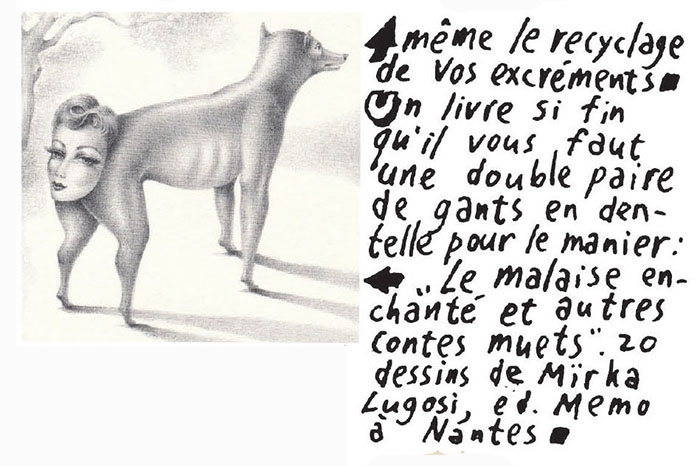 même le recyclage
de vos excréments■
Un livre si fin
qu'il vous faut
une double paire
de gants en den-
telle pour le manier:
„Le malaise en-
chanté et autres
contes muets". 20
dessins de Mïrka
Lugosi, éd. Memo
à Nantes■